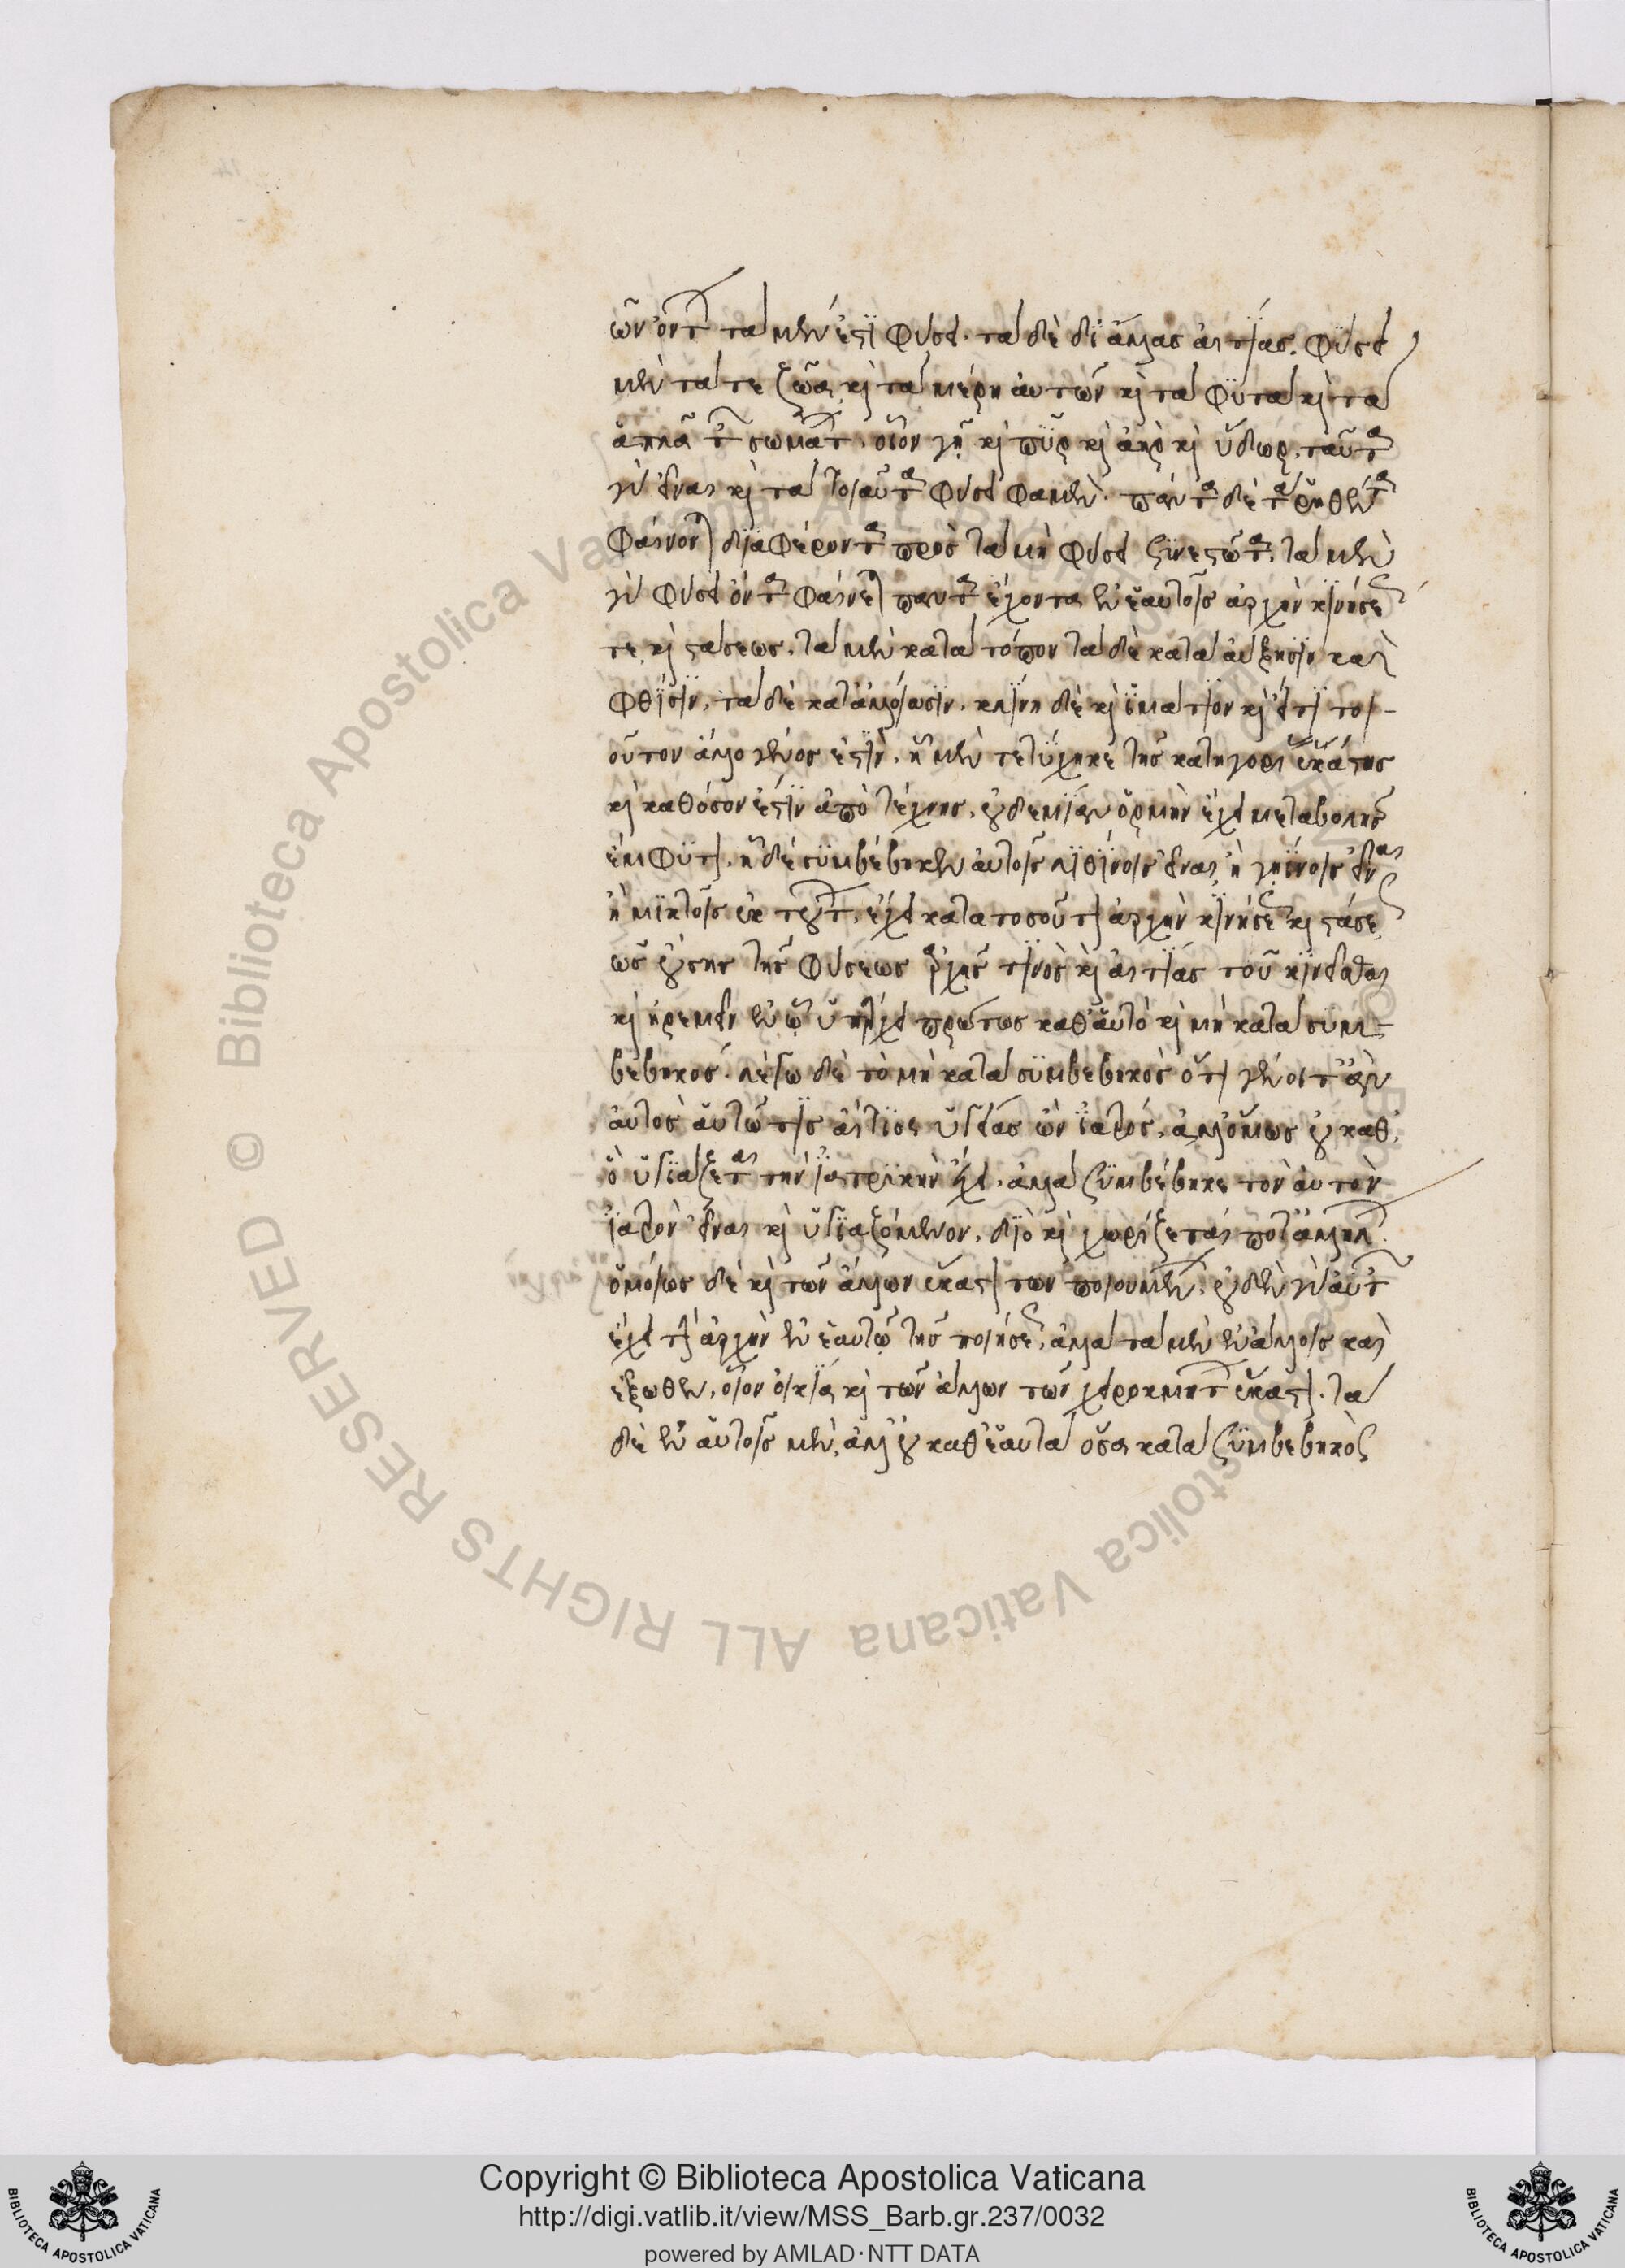 ῶν ὄντ τὰ μὲν ἐστὶ φύσει. τὰ δὲ δι ἄλλας αἰτίας. φύσει
μὲν τά τε ζῶα καὶ τὰ μέρη αὐτῶν καὶ τὰ φυτὰ καὶ τὰ
ἁπλᾶ τ σωμάτ. οἷον γῆ καὶ πῦρ καὶ ἀὴρ καὶ ὕδωρ. ταῦτα
γὰρ εἶναι καὶ τὰ τοιαῦτα φύσει φαμὲν. πάντα δὲ τὰ ῥηθέντα
φαίνονται διαφέροντα πρὸς τὰ μὴ φύσει ξυνεστῶτα. τὰ μὲν
γὰρ φύσει ὄντα φαίνεται πάντα ἔχοντα ἐν ἑαυτοῖς ἀρχὴν κινήσε
τε καὶ στάσεως. τὰ μὲν κατὰ τόπον τὰ δὲ κατὰ αὔξησιν καὶ
φθίσιν. τὰ δὲ κατ ἀλλοίωσιν. κλίνη δὲ καὶ ἱμάτιον καὶ εἴ τι τοι-
οῦτον ἄλλο γένος ἐστὶν. ᾗ μὲν τετύχηκε τῆς κατηγορι ἑκάστης
καὶ καθόσον ἐστὶν ἀπὸ τέχνης. οὐδεμίαν ὁρμὴν ἔχει μεταβολῆς
ἔμφυτ. ᾗ δὲ συμβέβηκεν αὐτοῖς λιθίνοις εἶναι ἢ γηίνοις εἶναι
ἢ μικτοῖς ἐκ τούτ. ἔχει κατὰ τοσοῦτ ἀρχὴν κινήσε καὶ στάσε
ὡς οὔσης τῆς φύσεως ἀρχῆς τινὸς καὶ αἰτίας τοῦ κινεῖσθαι
καὶ ἠρεμεῖν ἐν ᾧ ὑπάρχει πρώτως καθ αὑτὸ καὶ μὴ κατὰ συμ-
βεβηκός. λέγω δὲ τὸ μὴ κατὰ συμβεβηκὸς ὅτι γένοιτ ἂν
αὐτὸς αὑτῷ τις αἴτιος ὑγιείας ὢν ἰατρός. ἀλλ ὅμως οὐ καθ
ὃ ὑγιάζεται τὴν ἰατρικὴν ἔχει. ἀλλὰ ξυμβέβηκε τὸν αὐτὸν
ἰατρὸν εἶναι καὶ ὑγιαζόμενον. διὸ καὶ χωρίζεταί ποτ ἀλλήλ
ὁμοίως δὲ καὶ τῶν ἄλλων ἕκαστ τῶν ποιουμέν. οὐδὲν γὰρ αὐτ
ἔχει τὴν ἀρχὴν ἐν ἑαυτῷ τῆς ποιήσε. ἀλλὰ τὰ μὲν ἐν ἄλλοις καὶ
ἔξωθεν. οἷον οἰκία καὶ τῶν ἄλλων τῶν χειροκμήτ ἕκαστ. τὰ
δὲ ἐν αὑτοῖς μὲν. ἀλλ οὐ καθ ἑαυτὰ ὅσα κατὰ ξυμβεβηκὸς
Copyright © Biblioteca Apostolica Vaticana
http://digi.vatlib.it/view/MSS_Barb.gr.237/0032
powered by AMLAD·NTT DATA